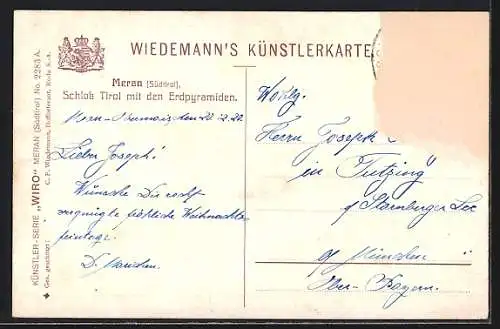 WIEDEMANN'S KÜNSTLERKARTE
Meran (Südtirol).
Schloß Tirol mit den Erdpyramiden.
KÜNSTLER-SERIE „WIRO“ MERAN (Südtirol) No. 2283 A.
C. F. Wiedemann, Hoflieferant, Roda S.-A.
Ges. geschützt!
Lieber Joseph!
Wünsche Dir recht
vergnügte fröhliche Weihnachts-
feiertage.
Herrn Joseph
in Tutzing
a/ Starnberger See
b/ München
Ober-Bayern.